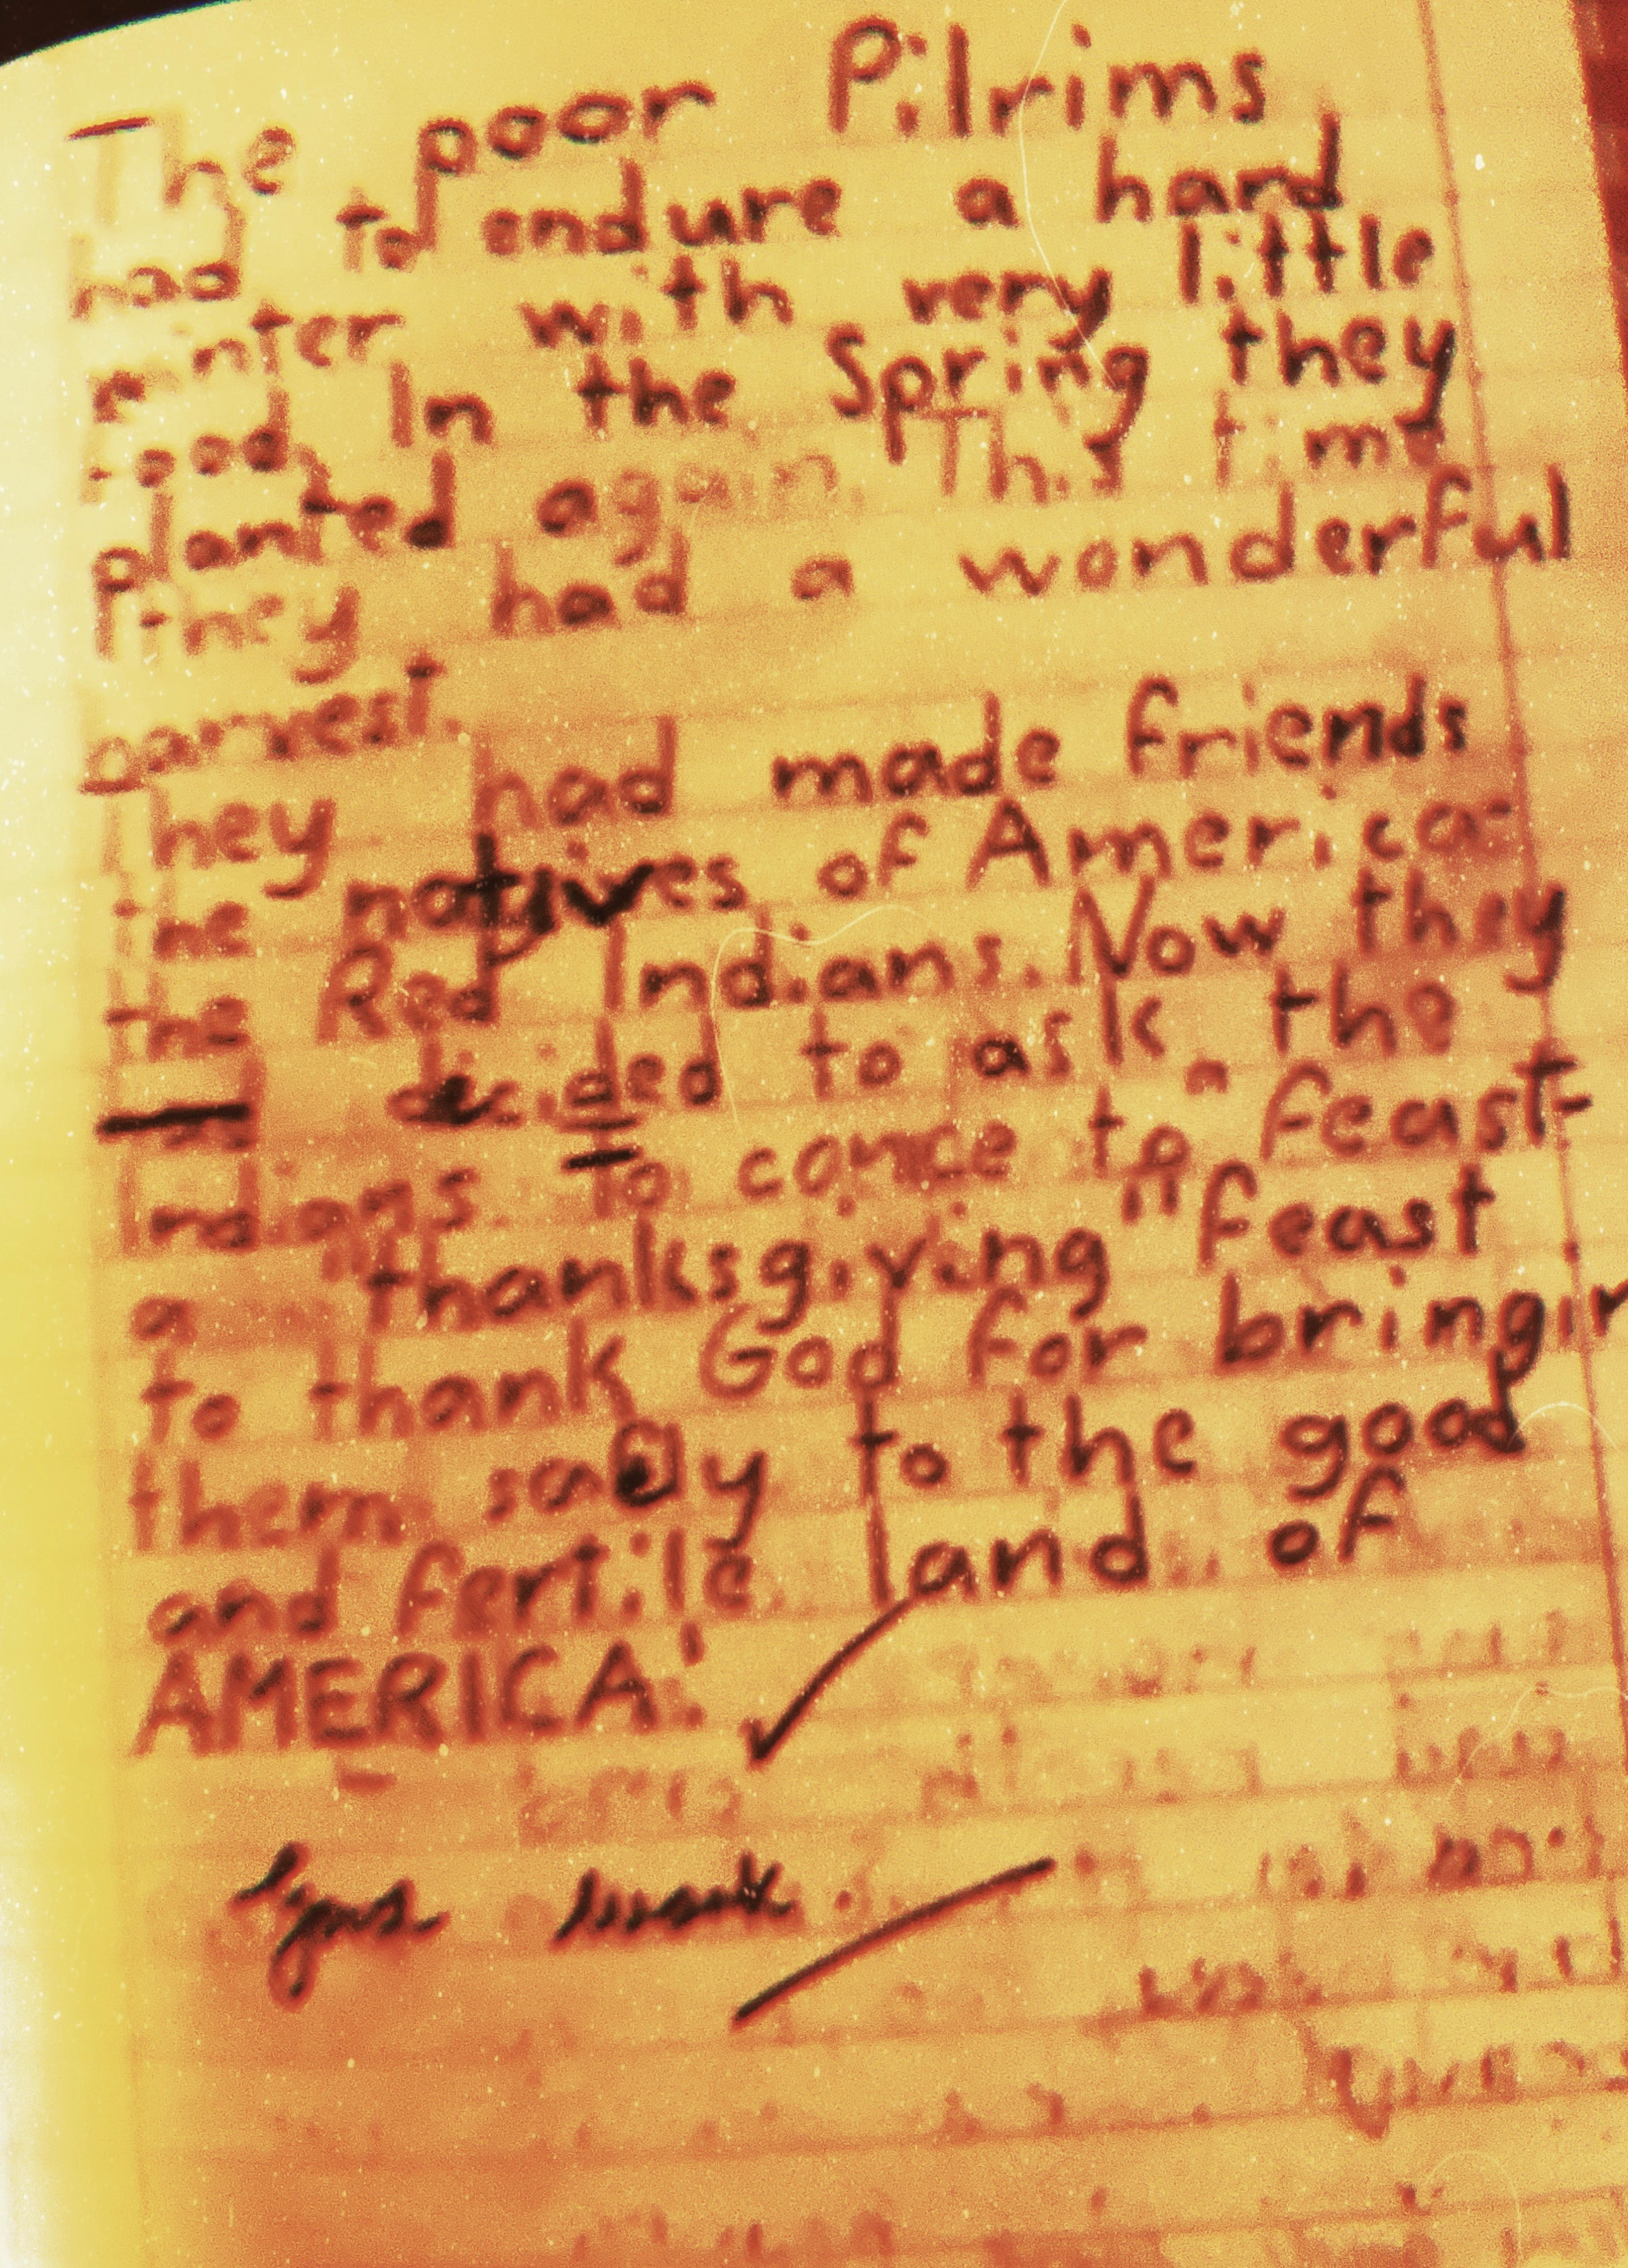 The poor Pilrims
had to endure a hard
winter with very little
food. In the Spring they
planted again. This time
they had a wonderful
harvest.
They had made friends
the natives of America-
the Red Indians. Now they
decided to ask the
Indians to come to a feast-
a "thanksgiving" feast
to thank God for bringin
them safly to the good
and fertile land of
AMERICA!
work